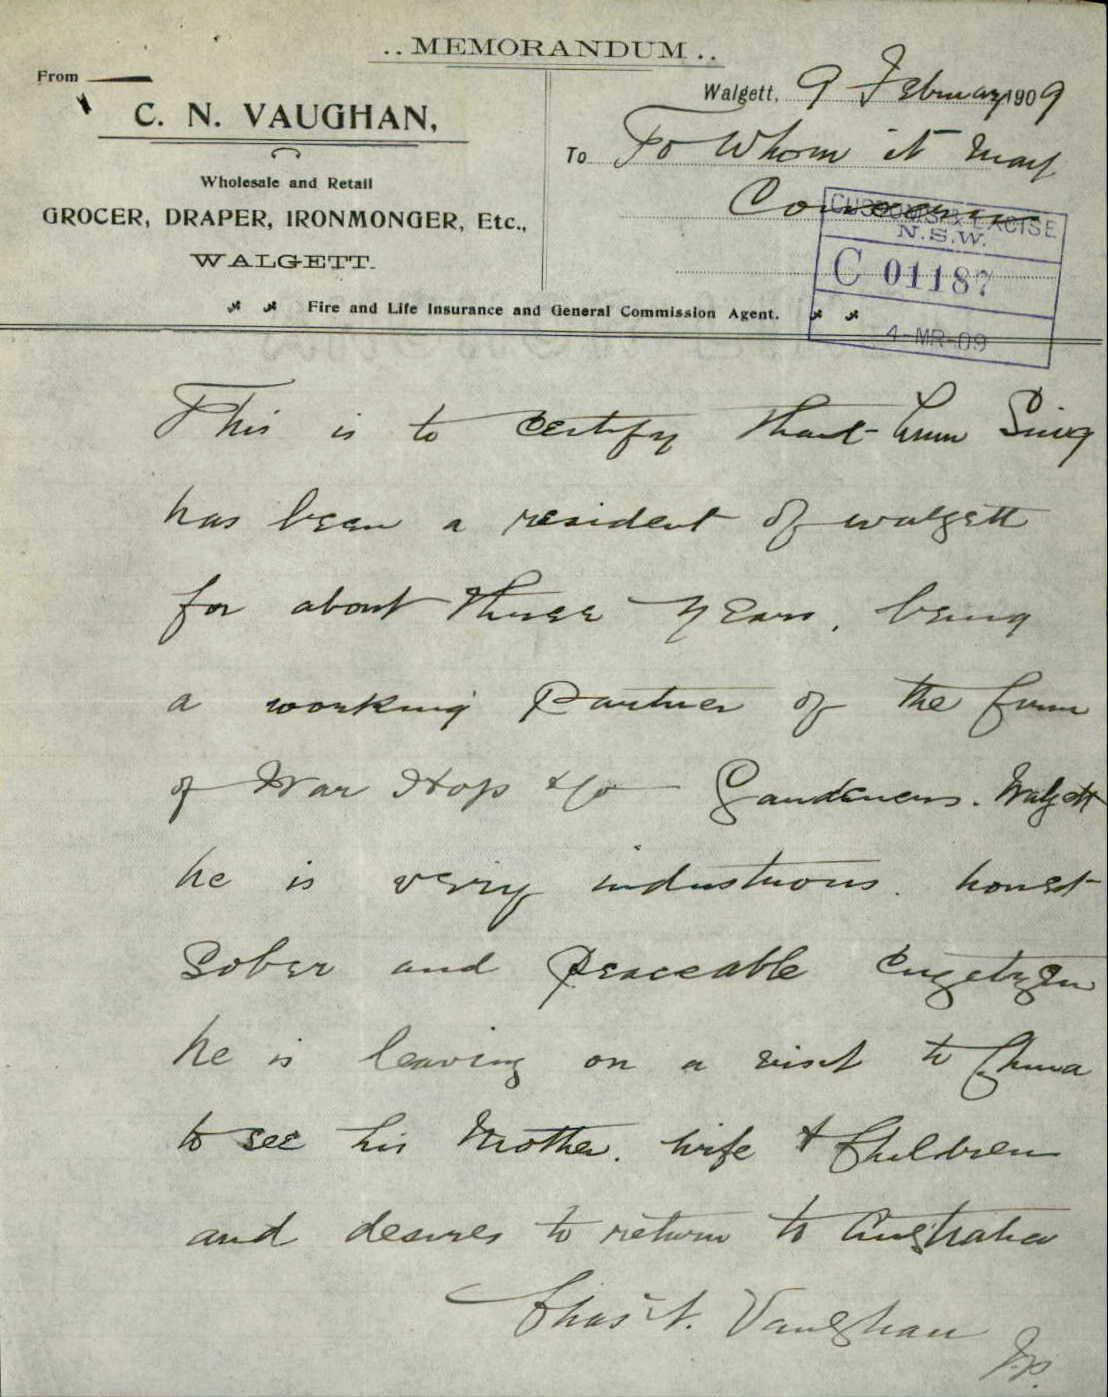 ..MEMORANDUM..
From
C. N. VAUGHAN,
Wholesale and Retail
GROCER, DRAPER, IRONMONGER, Etc.,
WALGETT.
Fire and Life Insurance and General Commission Agent.
Walgett, 9 February 1909
To To Whom it May
Concern
CUSTOMS & EXCISE
N.S.W.
C 01187
4-MR-09
This is to certify that Sing
has been a resident of walgett
for about three years, being
a working Partner of the firm
of War Hop & Co Gardeners. Walgett
he is verry industruous. honest
Sober and peaceable
he is leaving on a visit to China
to see his Mother. wife & Children
and desires to return to Australia
Chas N. Vaughan
J.P.